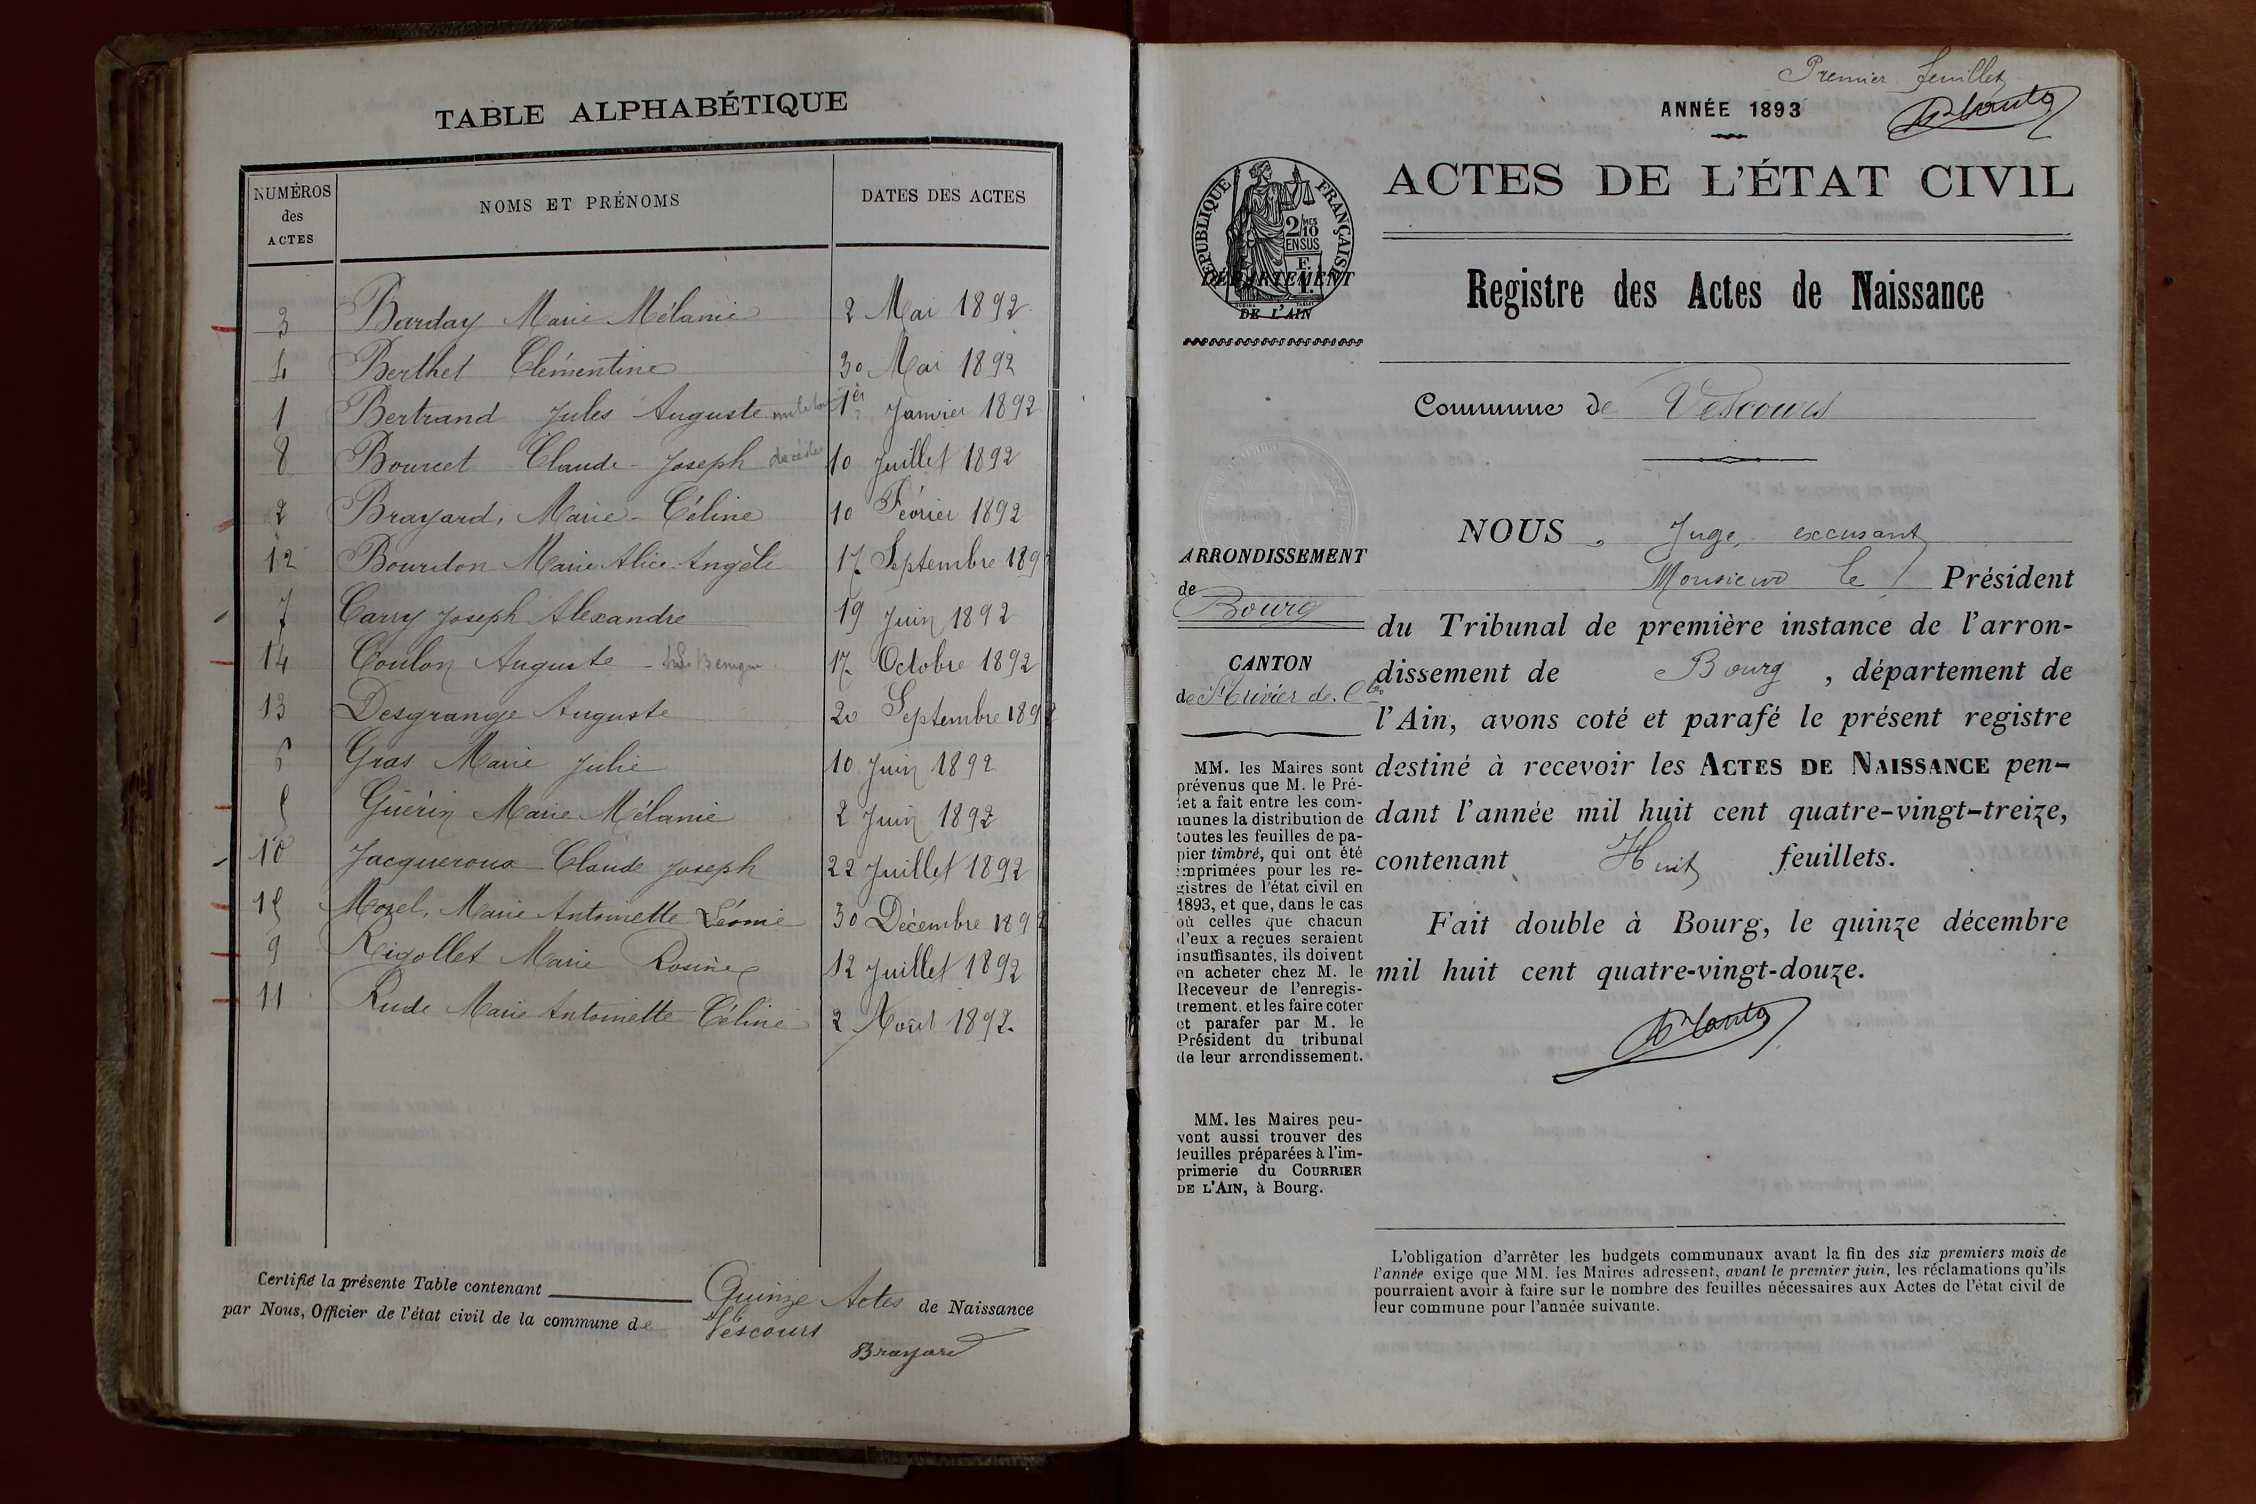 TABLE ALPHABÉTIQUE
NUMÉROS des ACTES NOMS ET PRÉNOMS DATES DES ACTES
3 Barday Marie Mélanie 2 Mai 1892
4 Berthet Clémentine 30 Mai 1892
1 Bertrand Jules Auguste 1er Janvier 1892
8 Bourcet Claude-Joseph décédé 10 Juillet 1892
2 Brayard, Marie-Céline 10 Février 1892
12 Bourdon Marie Alice Angèle 17 Septembre 189
7 Carry Joseph Alexandre 19 Juin 1892
14 Coulon Auguste 17 Octobre 1892
13 Desgrange Auguste 20 Septembre 1892
6 Gras Marie Julie 10 Juin 1892
5 Guérin Marie Mélanie 2 Juin 1892
10 Jacqueroux Claude Joseph 22 Juillet 1892
15 Morel, Marie Antoinette Léonie 30 Décembre 1892
9 Rigollet Marie Rosine 12 Juillet 1892
11 Rude Marie Antoinette Céline 2 Août 1892.
Certifié la présente Table contenant Quinze Actes de Naissance
par Nous, Officier de l'état civil de la commune de Vescours
Brayard
Premier feuillet
ANNÉE 1893
RÉPUBLIQUE FRANÇAISE
2/10 MES
EN SUS
DÉPARTEMENT
DE L'AIN
ACTES DE L'ÉTAT CIVIL
Registre des Actes de Naissance
Commune de Vescours
ARRONDISSEMENT
de
Bourg
CANTON
de St Trivier de Ctes
MM. les Maires sont
prévenus que M. le Pré-
fet a fait entre les com-
munes la distribution de
toutes les feuilles de pa-
pier timbré, qui ont été
imprimées pour les re-
gistres de l'état civil en
1893, et que, dans le cas
où celles que chacun
d'eux a reçues seraient
insuffisantes, ils doivent
en acheter chez M. le
Receveur de l'enregis-
trement, et les faire coter
et parafer par M. le
Président du tribunal
de leur arrondissement.
MM. les Maires peu-
vent aussi trouver des
feuilles préparées à l'im-
primerie du COURRIER
DE L'AIN, à Bourg.
NOUS, Juge, excusant
Monsieur le Président
du Tribunal de première instance de l'arron-
dissement de Bourg, département de
l'Ain, avons coté et parafé le présent registre
destiné à recevoir les ACTES DE NAISSANCE pen-
dant l'année mil huit cent quatre-vingt-treize,
contenant Huit feuillets.
Fait double à Bourg, le quinze décembre
mil huit cent quatre-vingt-douze.
L'obligation d'arrêter les budgets communaux avant la fin des six premiers mois de
l'année exige que MM. les Maires adressent, avant le premier juin, les réclamations qu'ils
pourraient avoir à faire sur le nombre des feuilles nécessaires aux Actes de l'état civil de
leur commune pour l'année suivante.